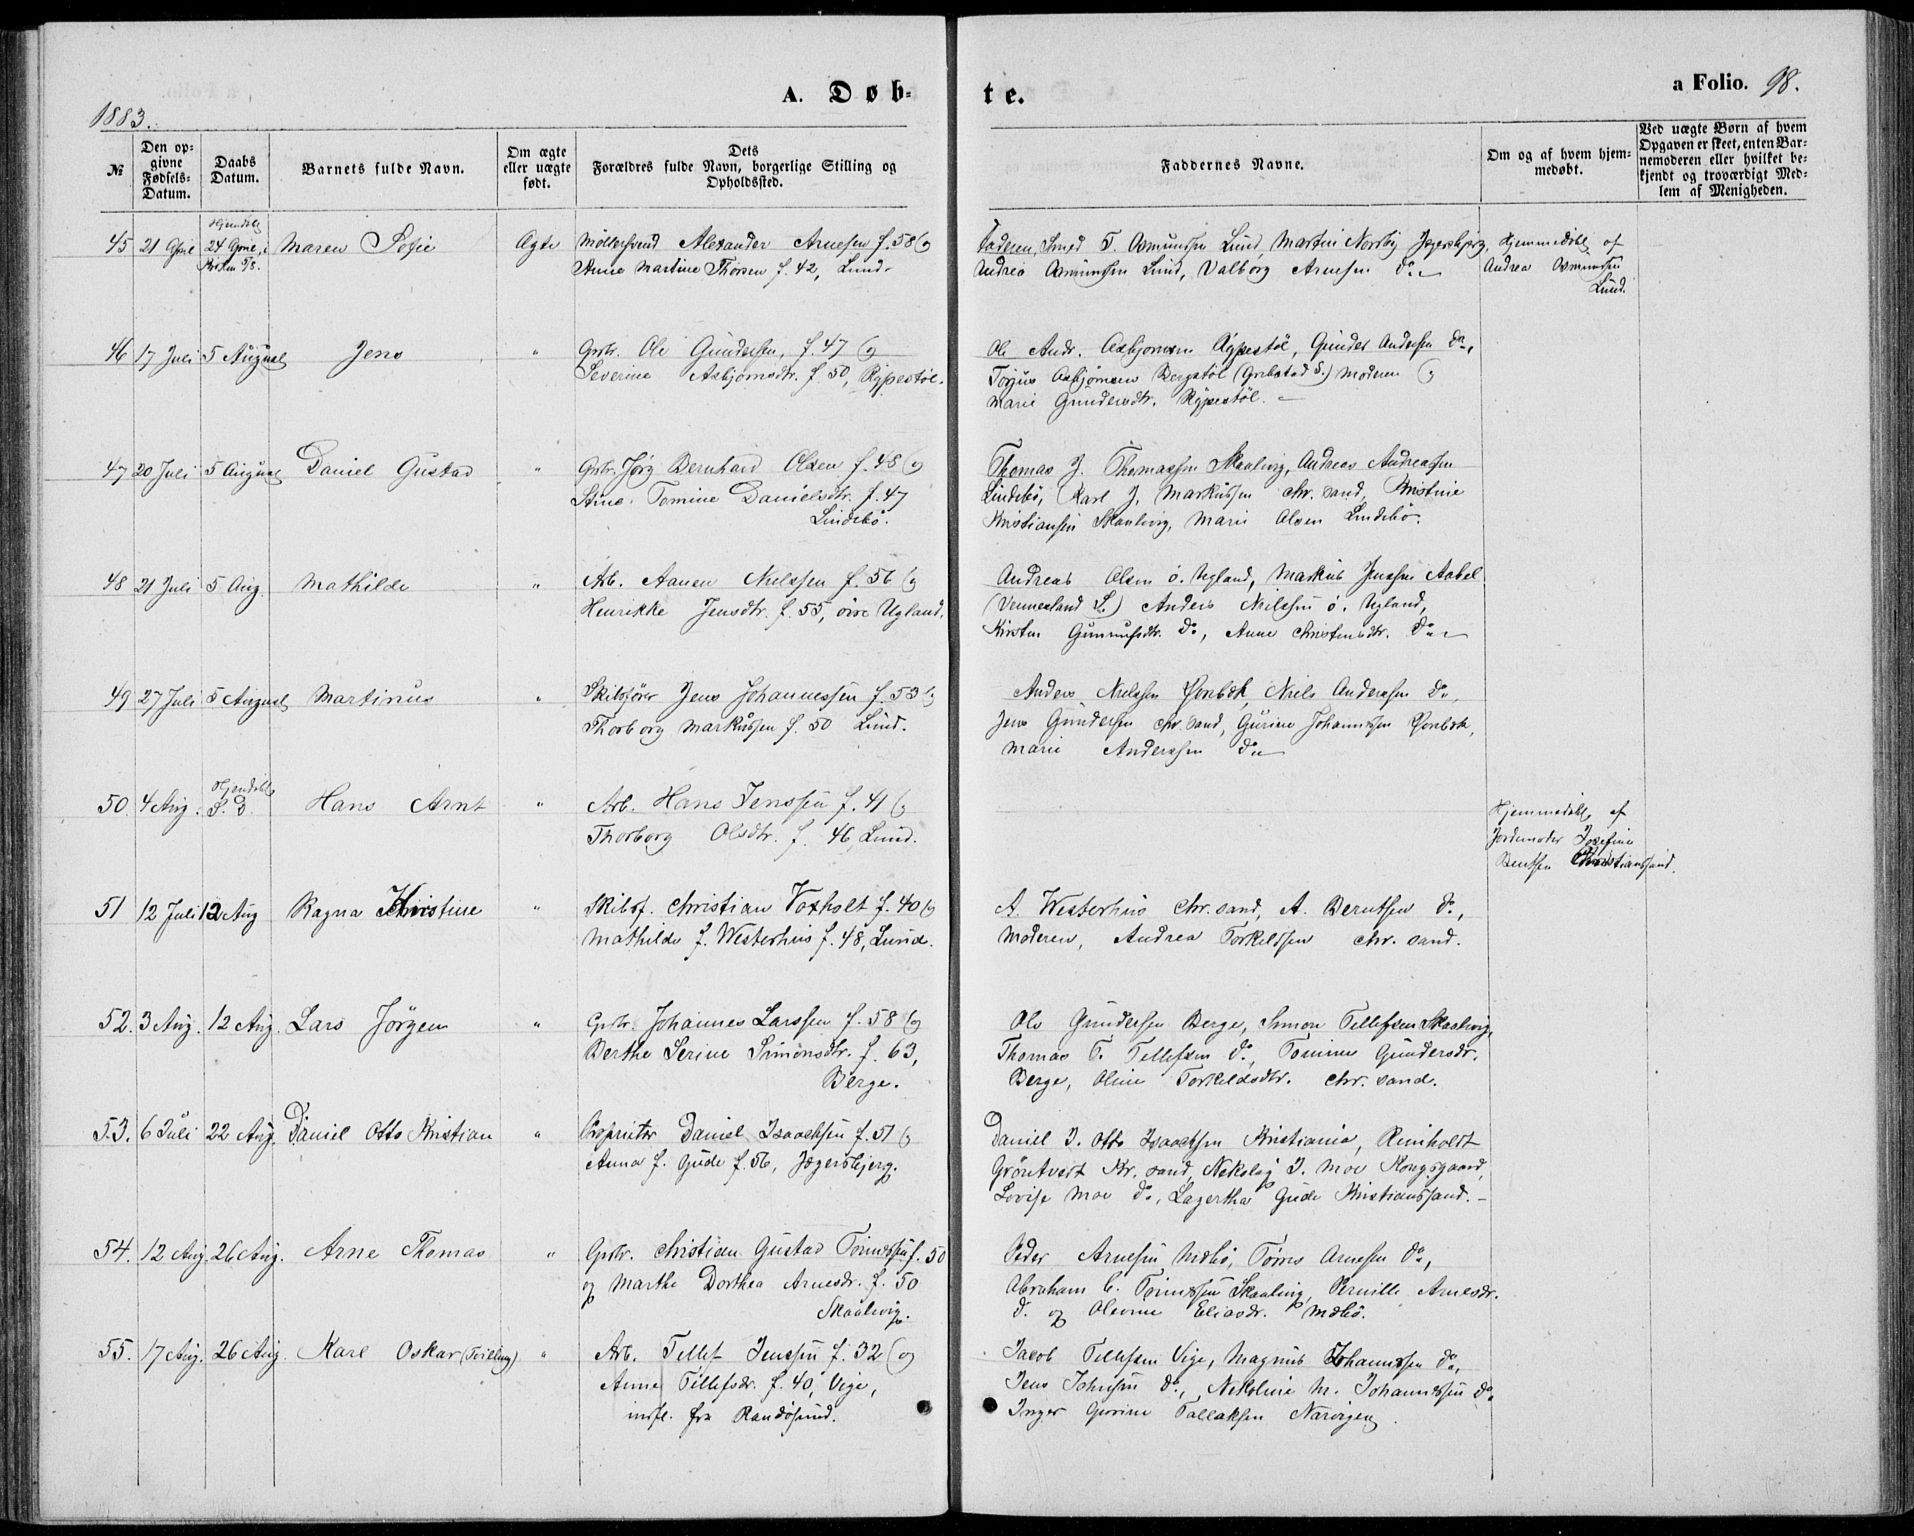 1883.
A. Døb-
te.
a Folio. 98.
№
Den op-
givne
Fødsels-
Datum.
Daabs
Datum.
Barnets fulde Navn.
Om ægte
eller uægte
født.
Dets
Forældres fulde Navn, borgerlige Stilling og
Opholdssted.
Faddernes Navne.
Om og af hvem hjem-
medøbt.
Ved uægte Børn af hvem
Opgaven er skeet, enten Bar-
nemoderen eller hvilket be-
kjendt og troværdigt Med-
lem af Menigheden.
45 21 24 Maren Sofie Ægte
Møllersvend Alexander Arnesen f. 58 og
Anne Martine Thorsen f. 42, Lund.
Faderen, Smed T. Osmundsen Lund, Martin Norby Jegersbjerg,
Andrea Osmundsen Lund, Valborg Arnesen do.
Hjemmedøbt af
Andrea Osmundsen
Lund.
46 17 Juli 5 August Jens "
Grbr. Ole Gundersen, f. 47 og
Severine Asbjørnsdtr. f. 50, Rypestøl.
Ole Andr. Asbjornsen Rypestøl, Gunder Andersen do.,
Torjus Asbjørnsen Bergstøl Moderen og
Marie Gundersdtr. Rypestøl.
47 20 Juli 5 August Daniel Gustad "
Grbr. Jørg Bernhard Olsen f. 48 og
Stine Tomine Danielsdtr. f. 47
Lindebø.
Thomas J. Thomassen Skaalevig, Andreas Andreassen
Lindebø, Karl J. Markussen Chr.sand, Kristine
Kristiansen Skaalevig, Marie Olsen Lindebø.
48 21 Juli 5 Aug. Mathilde "
Arb. Aanen Nielssen f. 56 og
Henrikke Jensdtr. f. 55, øvre Ugland.
Andreas Olsen ø. Ugland, Markus Jenssen Aabel
(Vennesland S.) Anders Nielssen ø. Ugland,
Kirsten Gunnufsdtr. do., Anne Christensdtr. do.
49 27 Juli 5 August Martinus "
Skibsfører Jens Johannessen f. 53 og
Thorborg Markussen f. 50 Lund.
Anders Nielssen, Niels Anderssen do.
Jens Gundersen Chr.sand, Gurine Johannessen
Marie Anderssen do.
50. 4 Aug. Hjemdøbt S. D. Hans Arnt "
Arb. Hans Jenssen f. 41 og
Thorborg Olsdtr. f. 46, Lund.
Hjemmedøbt af
Jordemoder Josefine
Bentsen Christianssand.
51 12 Juli 12 Aug Ragna Christine "
Skibsf. Christian Voxholt f. 40 og
Mathilde f. Westerhus f. 48, Lund.
A. Westerhus Chr.sand, A. Berntsen do.,
Moderen, Andrea Torkildsen Chr.sand.
52. 3 Aug. 12 Aug. Lars Jørgen "
Grbr. Johannes Larssen f. 58 og
Berthe Serine Simonsdtr. f. 63,
Berge.
Ole Gundersen Berge, Simon Tellefsen Skaalevig,
Thomas T. Tellefsen do., Tomine Gundersdr.
Berge, Oline Torkildsdtr. Chr.sand.
53. 6 Juli 22 Aug. Daniel Otto Kristian "
Proprietær Daniel Isaachsen f. 51 og
Anna f. Gude f. 56, Jegersbjerg.
Daniel I. Otto Isaachsen Kristiania, Reinholdt
Kr.sand, Nikolay I. Moe Kongsgaard,
Lovise Moe do., Lagertha Gude Kristianssand.
54. 12 Aug. 26 Aug. Arne Thomas "
Grbr. Christian Gustad Tønnessen f. 50
og Marthe Dorthea Arnesdr. f. 50
Skaalevig.
Peder Arnesen Mebø, Tørres Arnesen do.,
Abraham C. Tønnessen Skaalevig, Pernille Arnesdr.
do. og Eliasdr. Mebø.
55. 17 Aug. 26 Aug. Karl Oskar (Tvilling) "
Arb. Tellef Jenssen f. 32 og
Anne Tellefsdr. f. 40, Vige,
indfl. fra Randøsund.
Jacob Tellefsen Vige, Magnus Johannessen do.,
Jens Johnsen do., Nikoline M. Johannessen do.
Inger Gurine Tallaksen